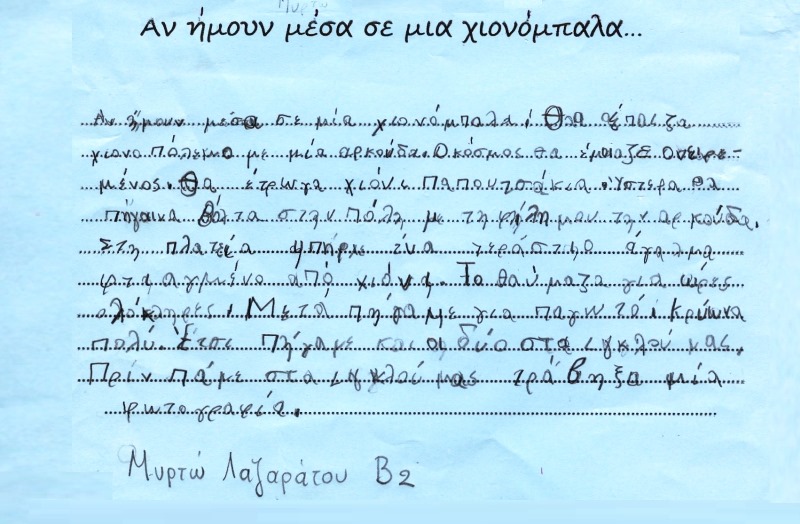 Μυρτώ
Αν ήμουν μέσα σε μια χιονόμπαλα...
Αν ήμουν μέσα σε μία χιονόμπαλα, θα έπαιζα
χιονοπόλεμο με μία αρκούδα. Ο κόσμος θα έμοιαζε ονειρε-
μένος. Θα έτρωγα χιόνι παπουτσάκια. Ύστερα θα
πήγαινα βόλτα στην πόλη με τη φίλη μου την αρκούδα.
Στη πλατεία υπήρχε ένα τεράστιο άγαλμα
φτιαγμένο από χιόνι. Το θαύμαζα για ώρες
ολόκληρες. Μετά πήγαμε για παγωτό, κρύωνα
πολύ. Έτσι πήγαμε και οι δύο στα ιγκλού μας.
Πρίν πάμε στα ιγκλού μας τράβηξα μία
φωτογραφία.
Μυρτώ Λαζαράτου Β2